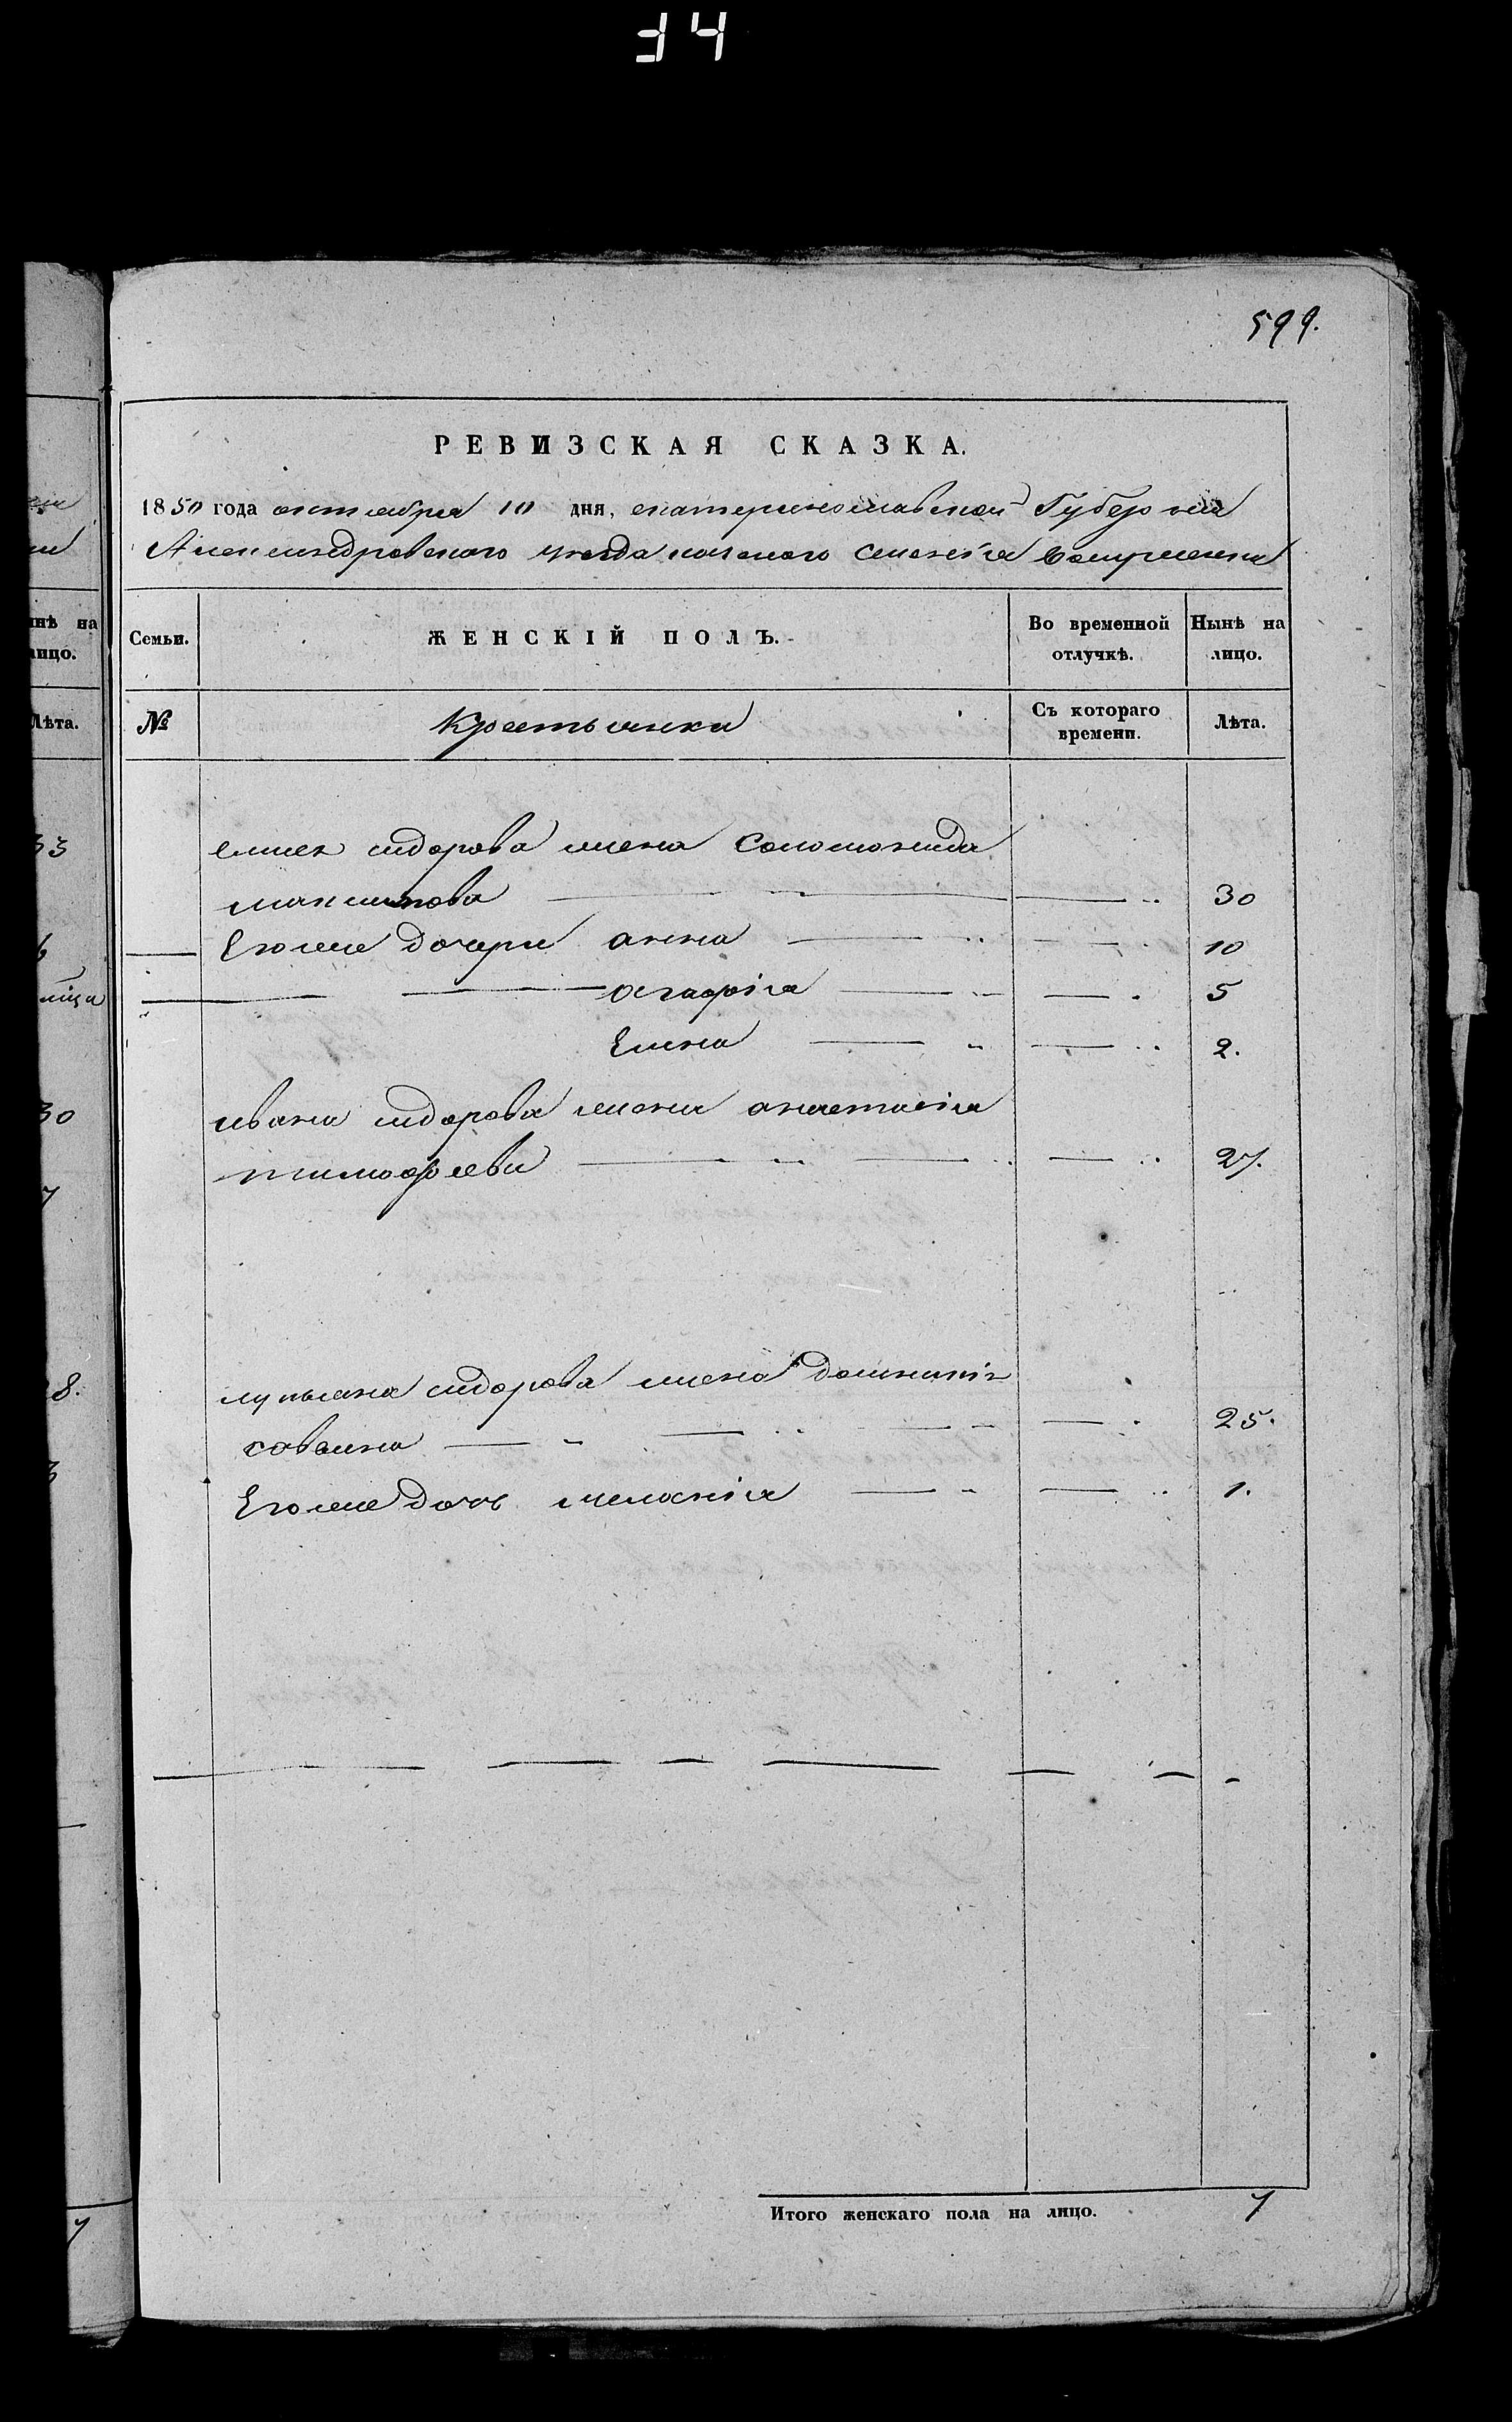 34
599.
РЕВИЗСКАЯ СКАЗКА.
1850 года октября 10 дня, екатеринославской Губернии
Александровского уезда казеного селенія
Семьи. ЖЕНСКІЙ ПОЛЪ. Во временной отлучкѣ. Нынѣ на лицо.
№ Крестьянки Съ котораго времени. Лѣта.
сидорова жена Соломонида
максимова 30
Егоже дочери анна 10
агафія 5
Елена 2.
ивана сидорова жена анастасія
тимофеева 27.
лукьяна сидорова жена домникія
савелна 25.
Егоже дочь меланія 1.
Итого женскаго пола на лицо. 7
нѣ на
лицо.
Лѣта.
33
30
7
8.
3
7